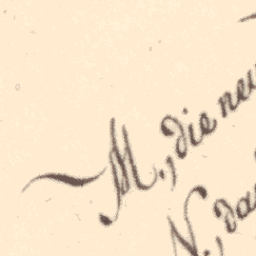 M., die neu
N., da